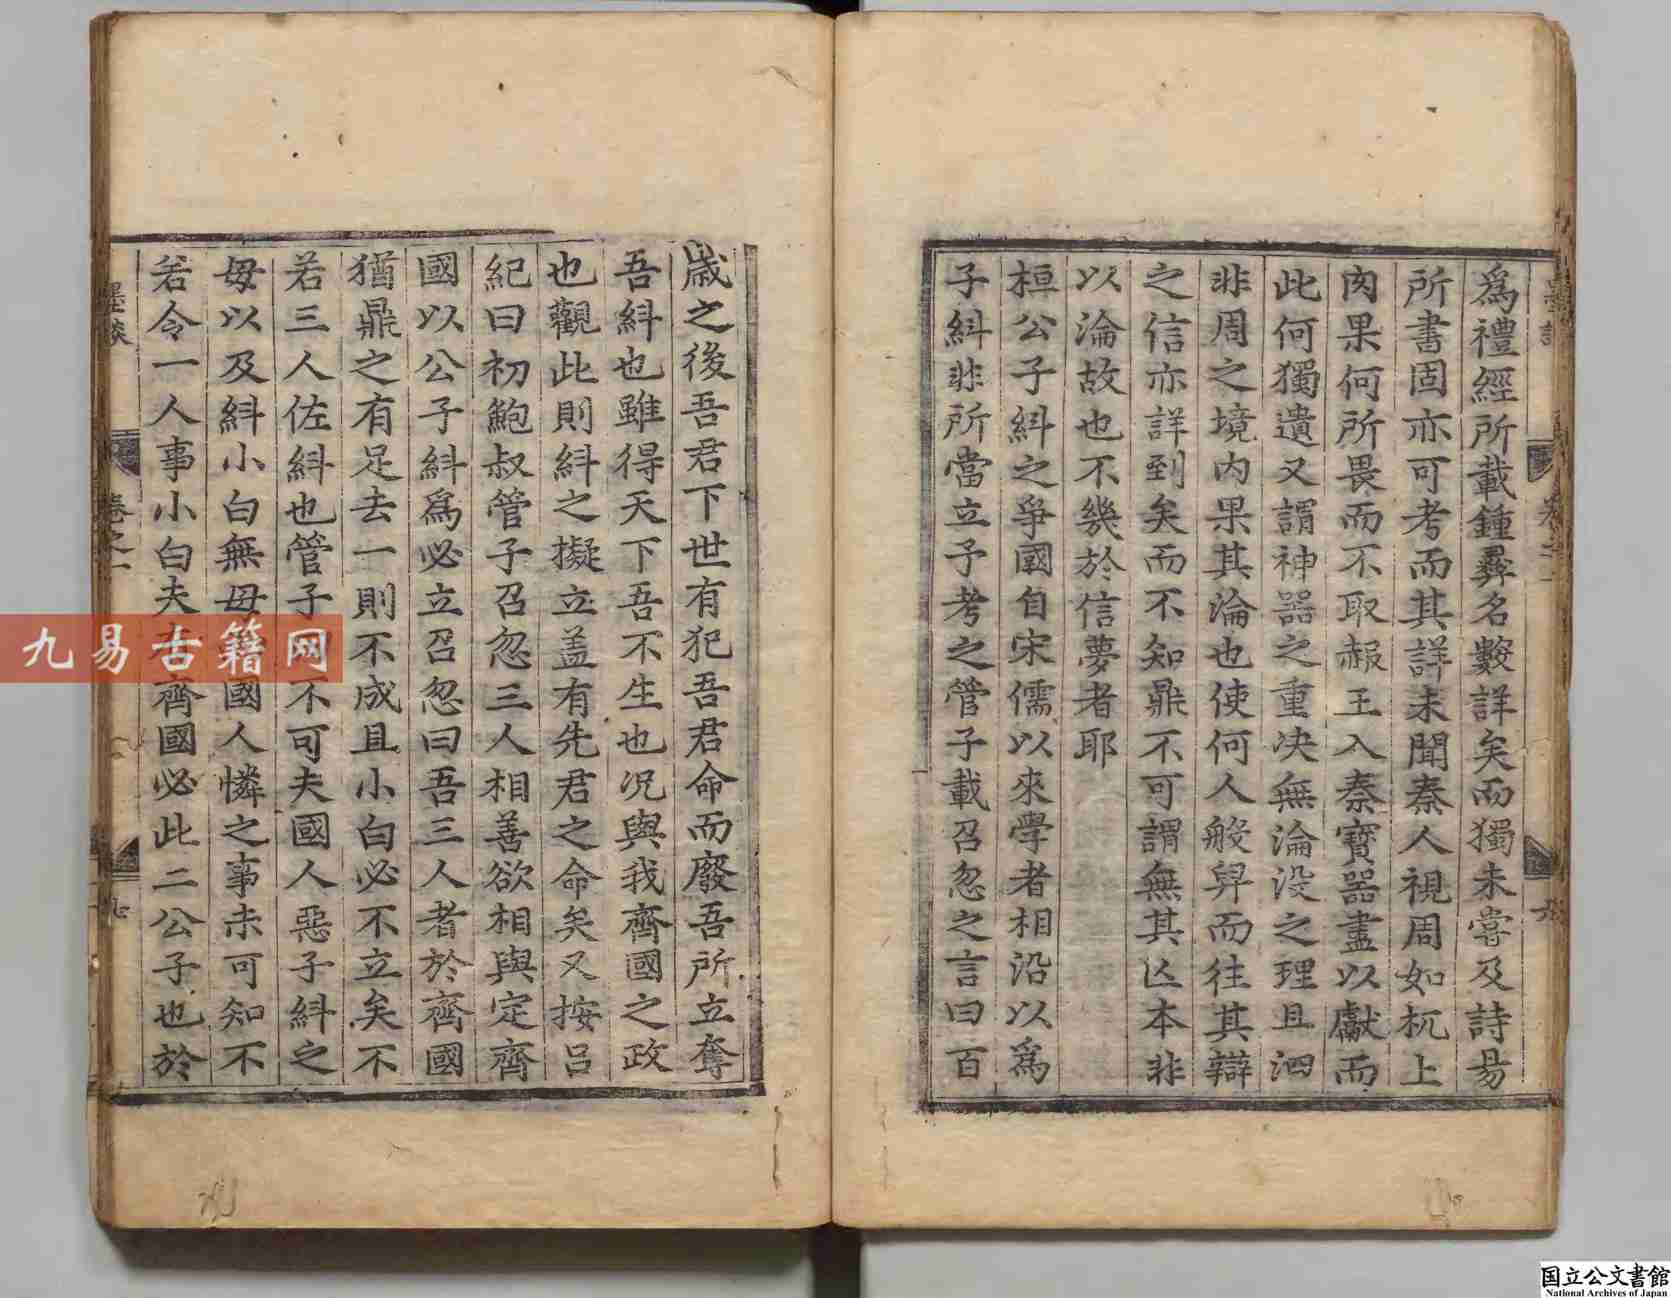 爲禮經所載鍾彞名數詳矣而獨未甞及詩易
所書固亦可考而其詳未聞秦人視周如杌上
肉果何所畏而不取赧王入秦寳器盡以獻而
此何獨遺又謂神器之重决無淪没之理且泗
非周之境内果其淪也使何人般舁而往其辯
之信亦詳到矣而不知鼎不可謂無其亾本非
以淪故也不幾於信夢者耶
桓公子糾之爭國自宋儒以來學者相沿以爲
子糾非所當立予考之管子載召忽之言曰百
歳之後吾君下世有犯吾君命而廢吾所立奪
吾糾也雖得天下吾不生也况與我齊國之政
也觀此則糾之擬立盖有先君之命矣又按吕
紀曰初鮑叔管子召忽三人相善欲相與定齊
國以公子糾爲必立召忽曰吾三人者於齊國
猶鼎之有足去一則不成且小白必不立矣不
若三人佐糾也管子不可夫國人惡子糾之
毋以及糾小白無毋國人憐之事未可知不
若令一人事小白夫齊國必此二公子也於
墨談
卷之一
九易古籍网
国立公文書館
National Archives of Japan